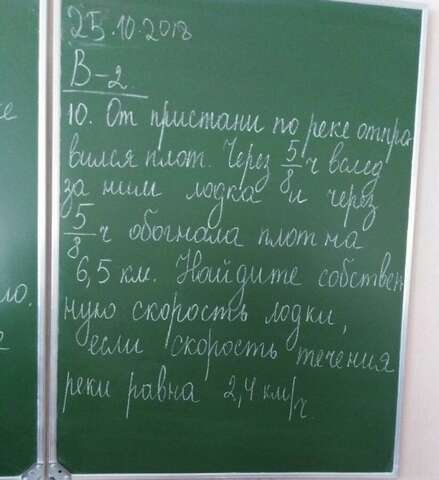 25.10.2018
В-2
10. От пристани по реке отпра
вился плот. Через 5/8 ч вслед
за ним лодка и через
5/8 ч обогнала плот на
6,5 км. Найдите собствен
ную скорость лодки,
если скорость течения
реки равна 2,4 км/ч.
е
ло.